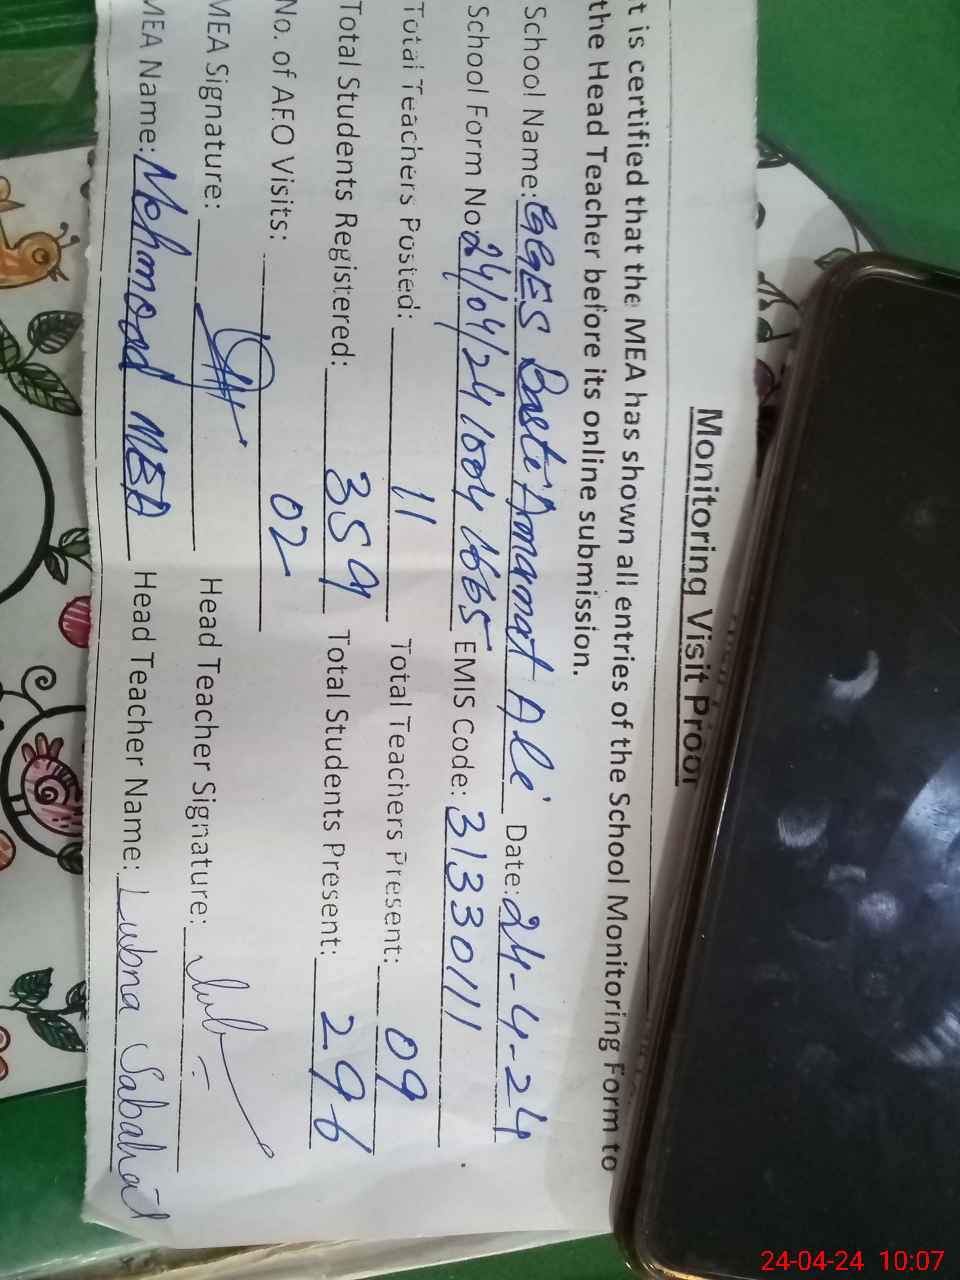 Monitoring Visit Proof
t is certified that the MEA has shown all entries of the School Monitoring Form to
the Head Teacher before its online submission.
School Name: GGES Basti Amanat Ali Date: 24-4-24
School Form No 24/04/24/004/665 EMIS Code: 31330111
Total Teachers Posted: 11 Total Teachers Present: 09
Total Students Registered: 359 Total Students Present: 296
No. of AEO Visits: 02
MEA Signature: Head Teacher Signature:
MEA Name: Mehmood MEA Head Teacher Name: Lubna Sabahat
24-04-24 10:07